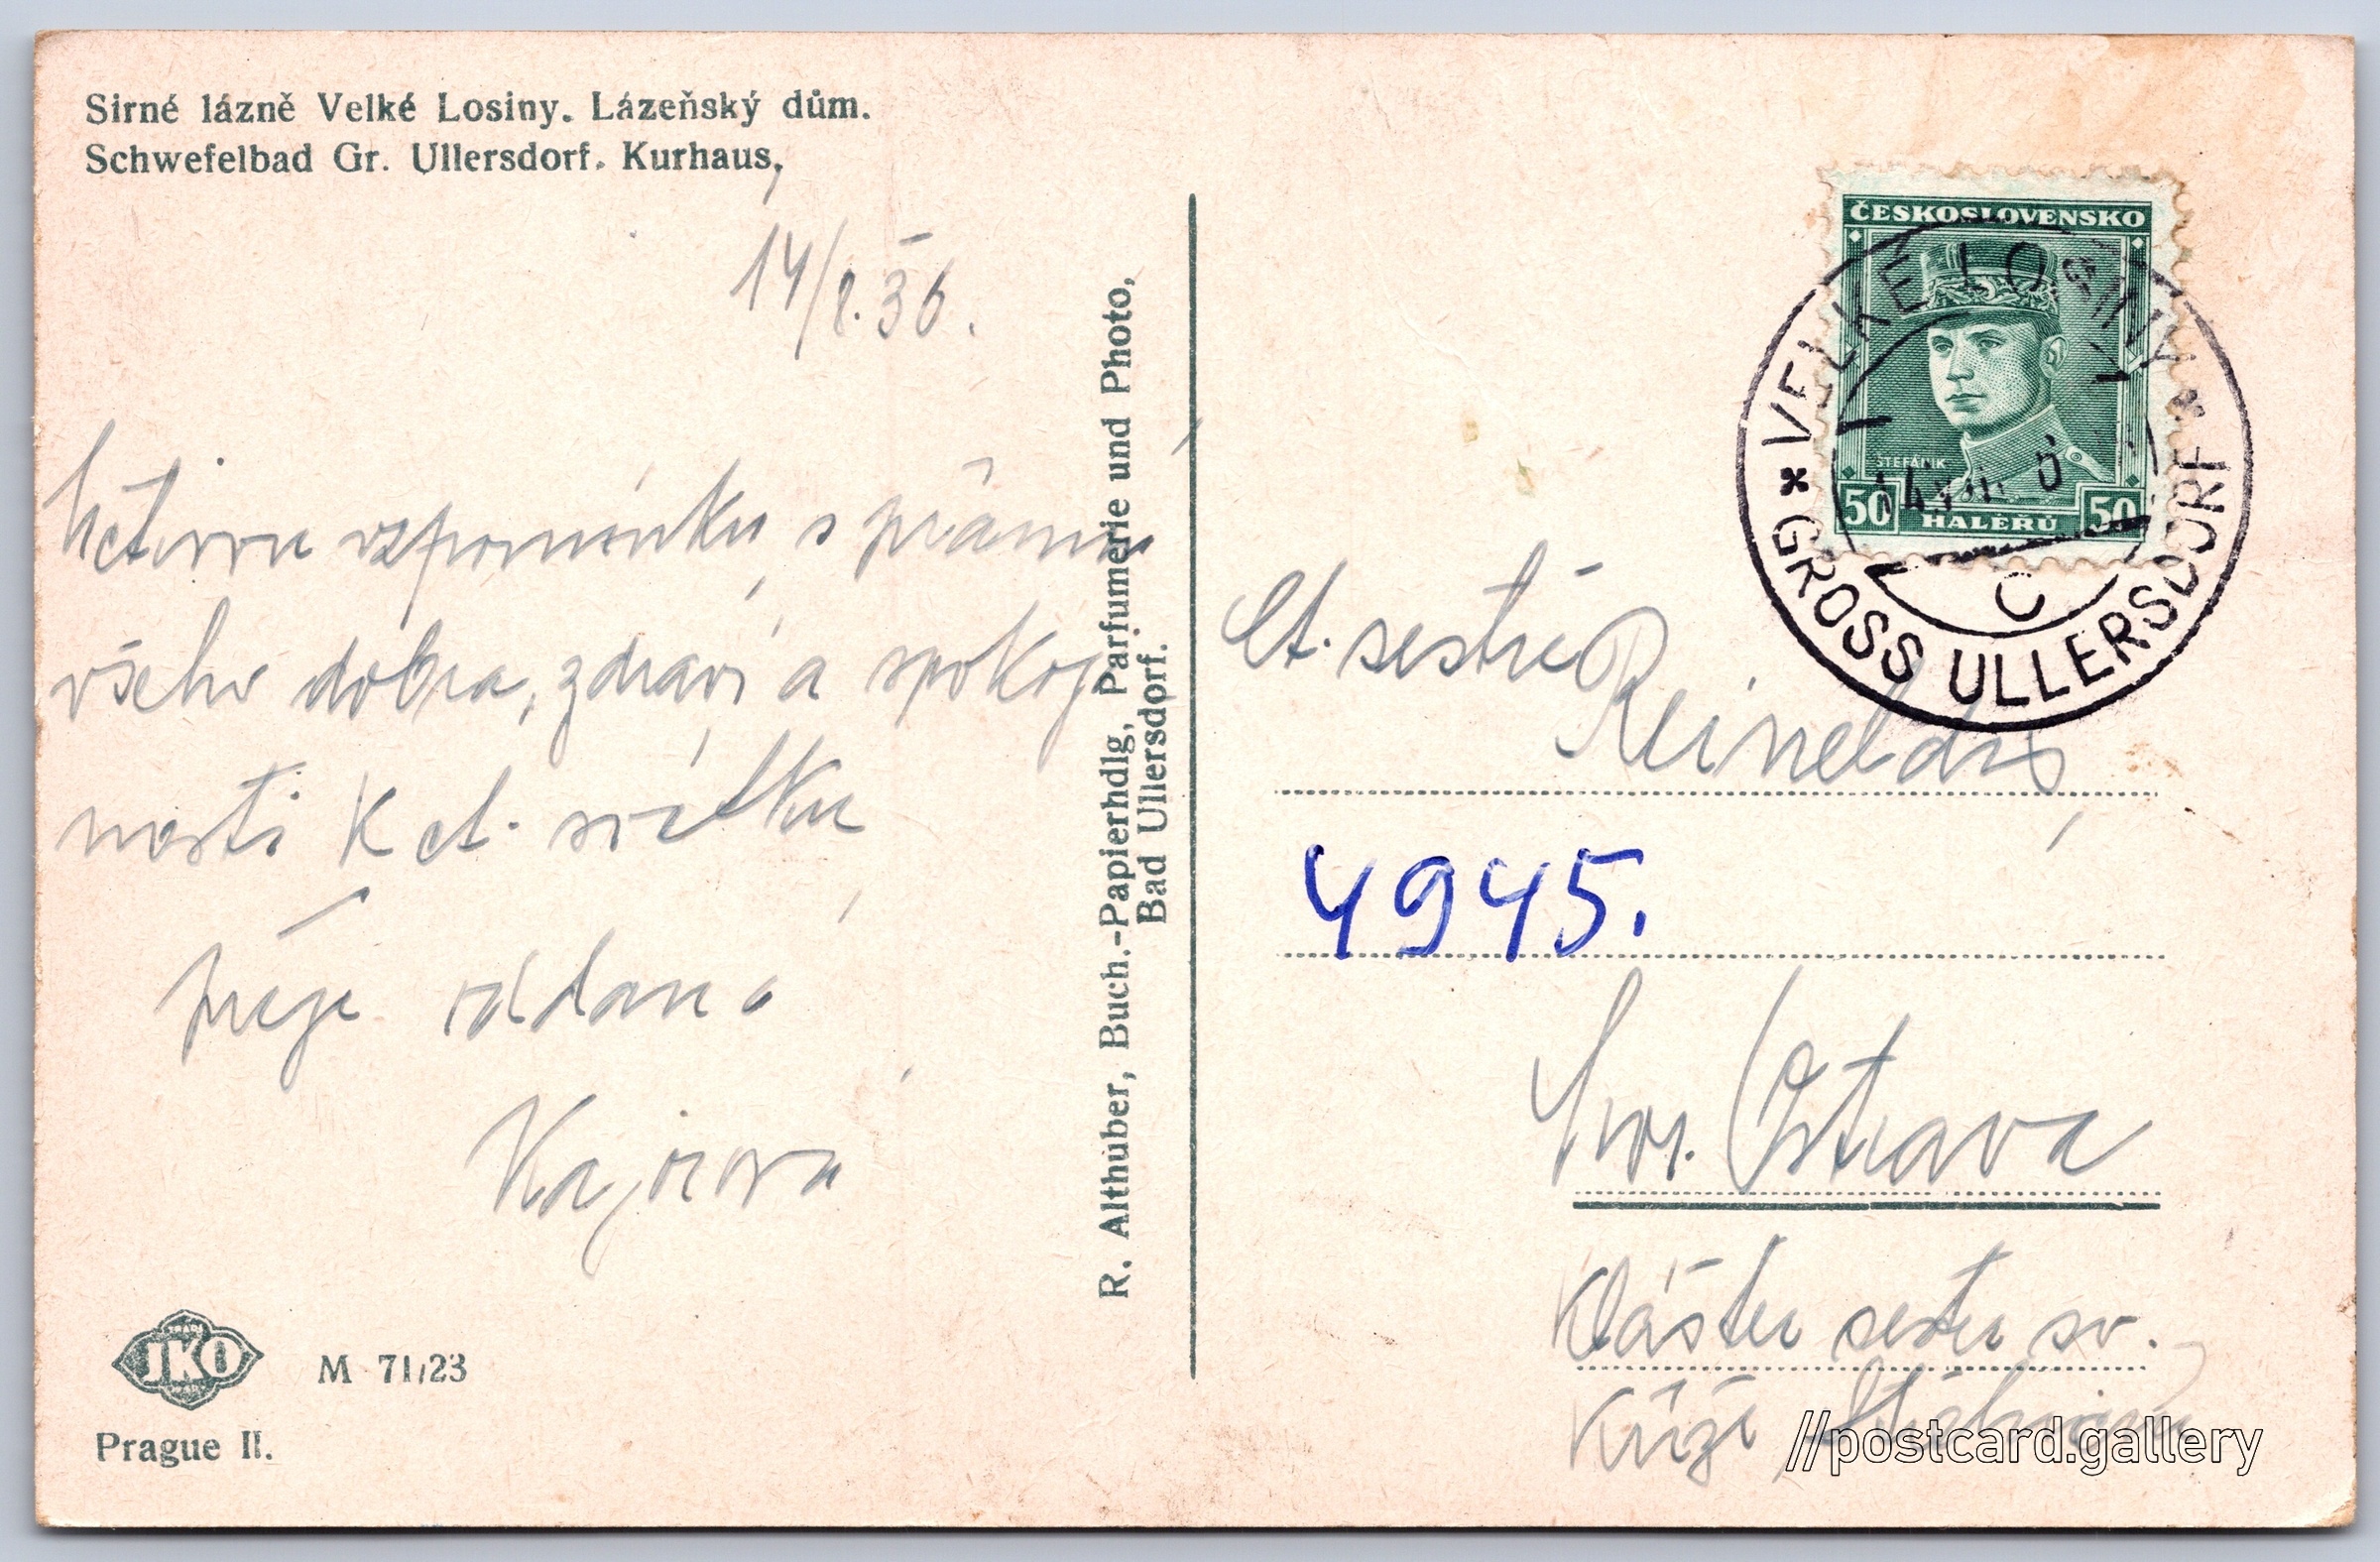 Sirné lázně Velké Losiny. Lázeňský dům.
Schwefelbad Gr. Ullersdorf. Kurhaus,
14/8.36.
Uctivou vzpomínku, s přáním
všeho dobra, zdraví a spokoj
nosti k ct. svátku
přeje oddaná
Kajírová
R. Althuber, Buch.-Papierhdlg, Parfumerie und Photo,
Bad Ullersdorf.
TRADE
JKO
M 71/23
Prague II.
ČESKOSLOVENSKO
ŠTEFÁNIK
50 HALÉŘŮ 50
VELKÉ LOSINY
GROSS ULLERSDORF
C
Ct. sestře
Reineldis,
4945.
Mor. Ostrava
Klášter sester sv.
Kříže
//postcard.gallery